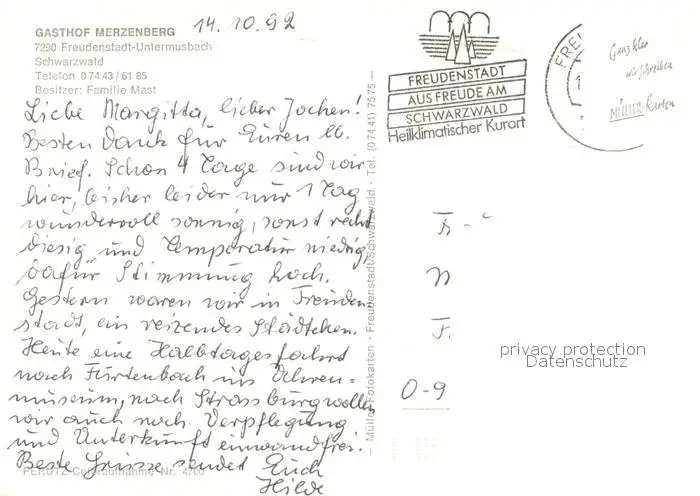 GASTHOF MERZENBERG
7290 Freudenstadt-Untermusbach
Schwarzwald
Telefon 0 74 43 / 61 85
Besitzer: Familie Mast
14. 10. 92
Liebe Margitta, lieber Jochen!
Besten Dank für Euren lb.
Brief. Schon 4 Tage sind wir
hier, bisher leider nur 1 Tag
wundervoll sonnig, sonst recht
diesig und Temperatur niedrig,
dafür Stimmung hoch.
Gestern waren wir in Freuden-
stadt, ein reizendes Städtchen.
Heute eine Halbtagesfahrt
nach Furtenbach ins Uhren-
museum, nach Strassburg wollen
wir auch noch. Verpflegung
und Unterkunft einwandfrei.
Beste Grüsse sendet Euch
Hilde
PERUTZ-Coloraufnahme Nr. 4700
Müller Fotokarten · Freudenstadt/Schwarzwald · Tel. (07441) 7575
FREUDENSTADT
AUS FREUDE AM
SCHWARZWALD
Heilklimatischer Kurort
FREU
1
Ganz klar
wir schreiben
MÜLLER-Karten
F
O-9
privacy protection
Datenschutz